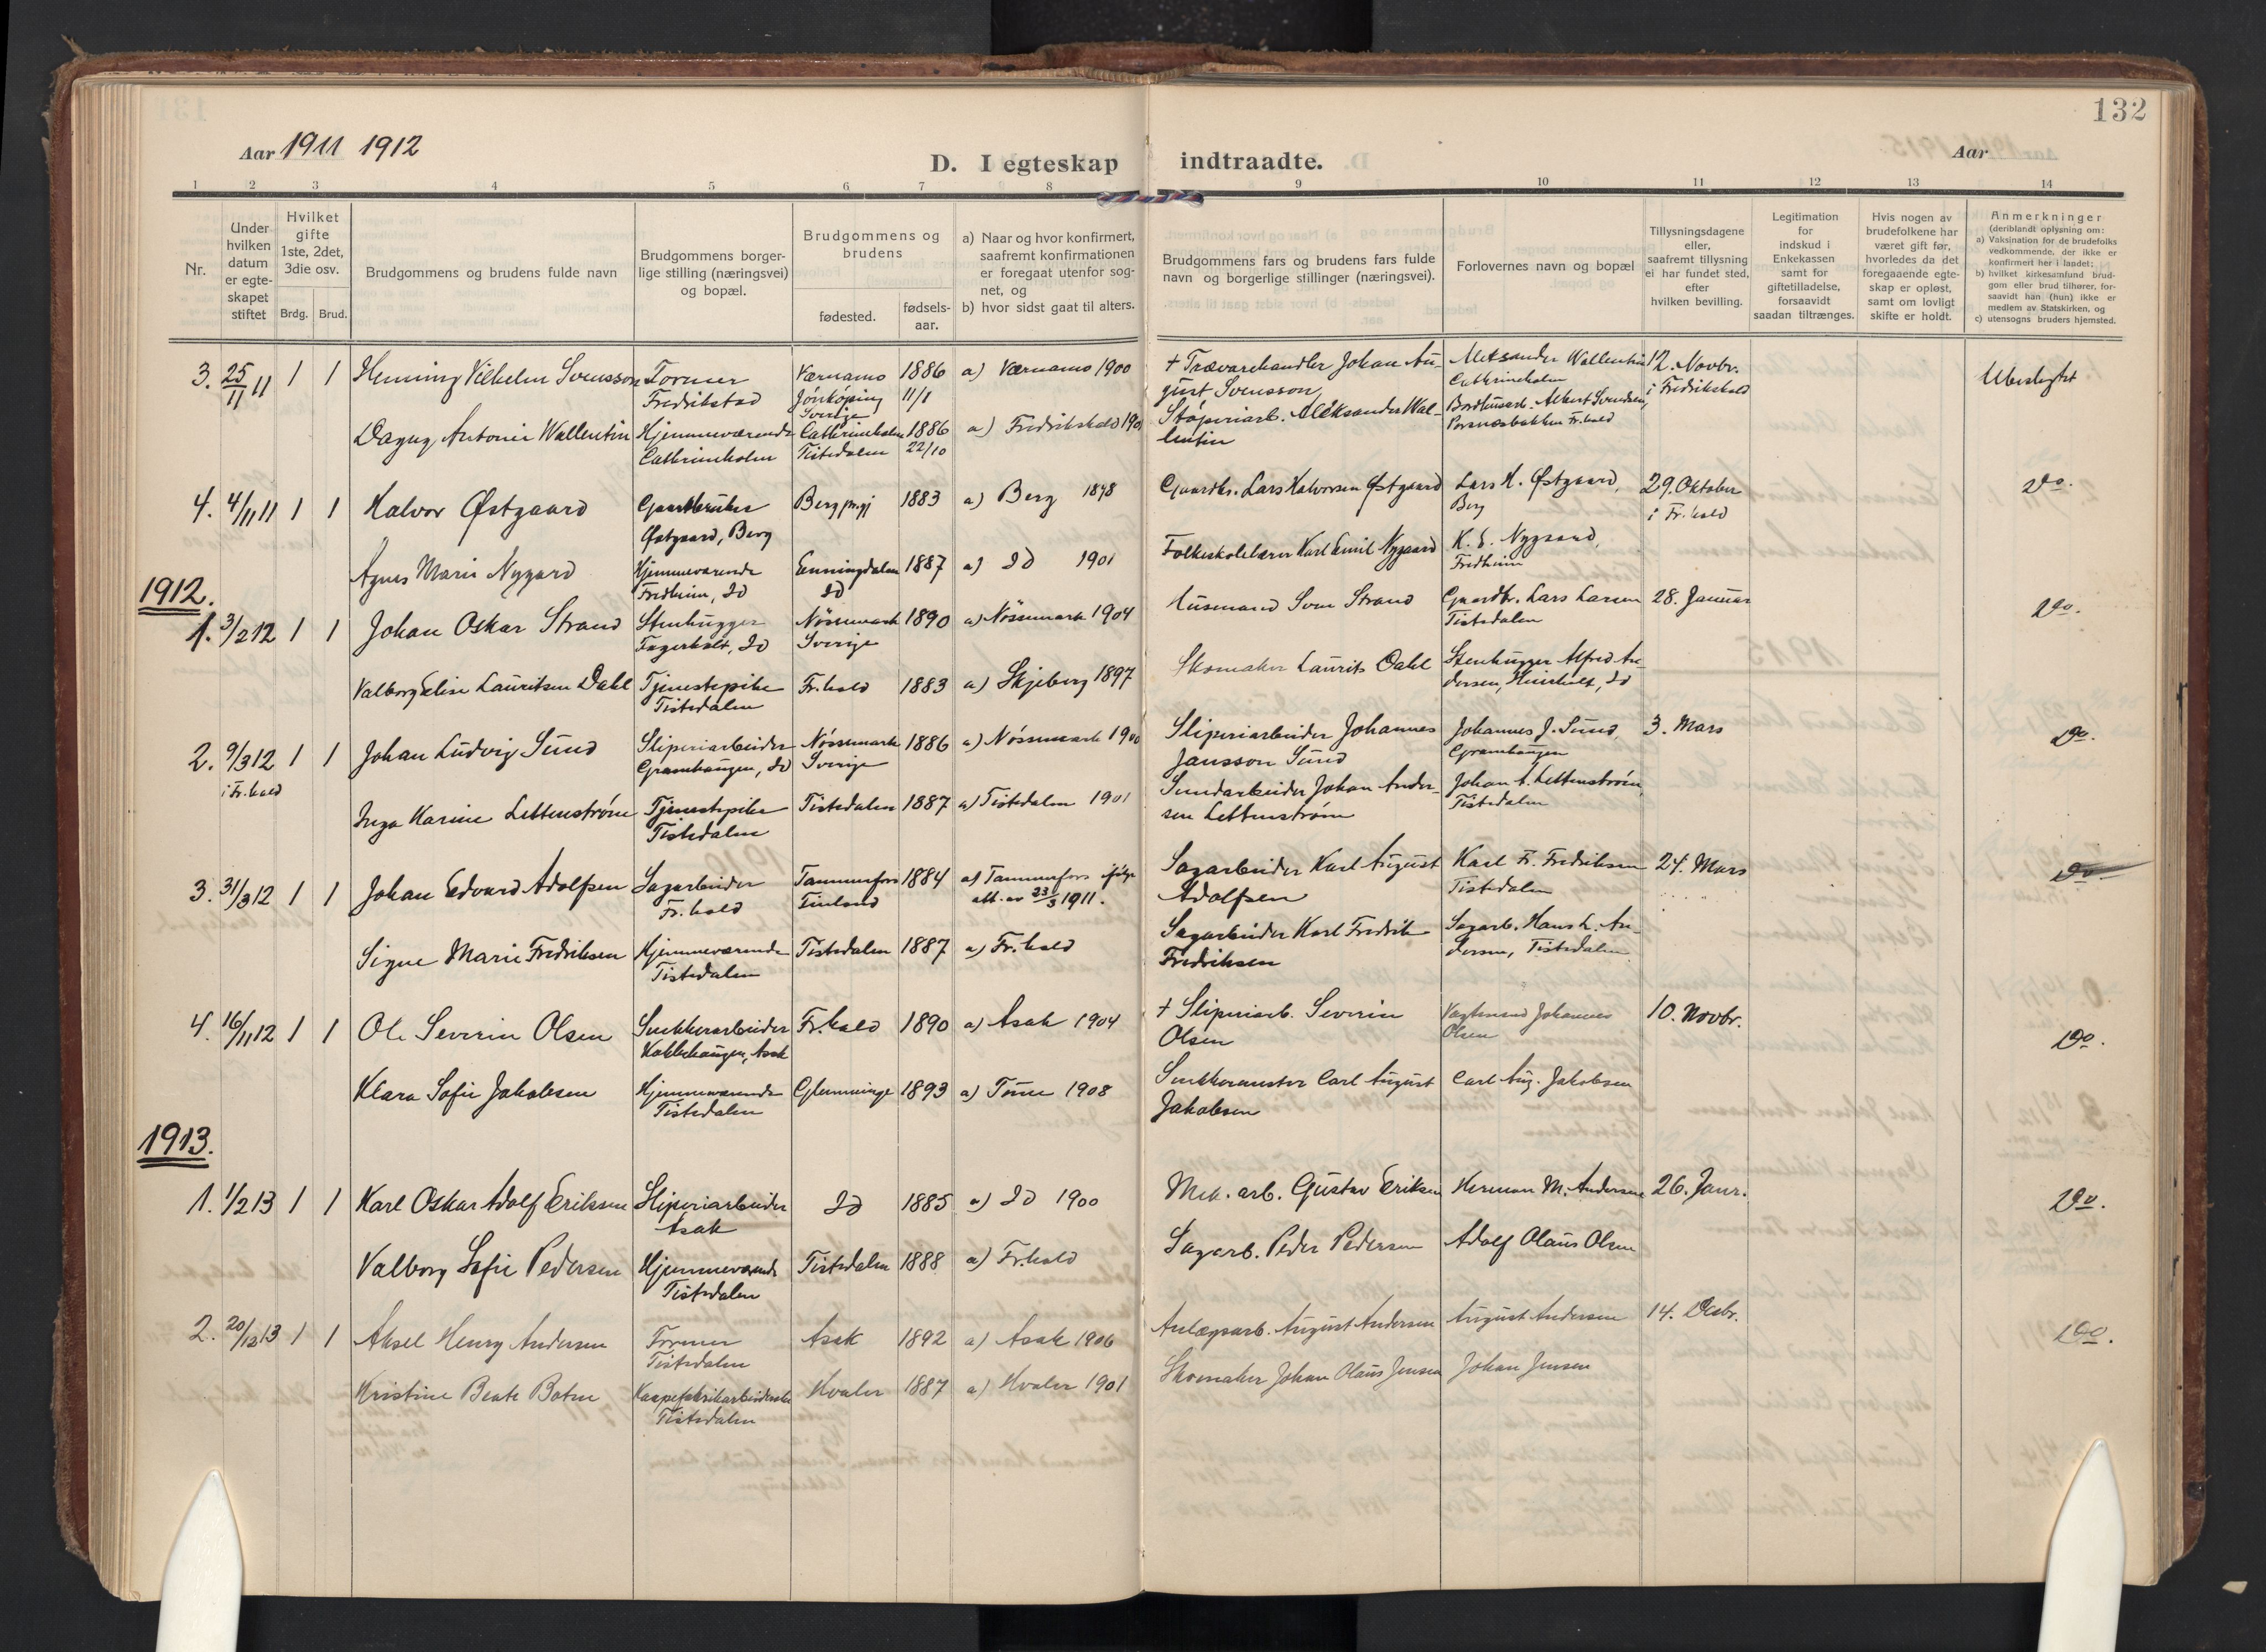 132
Aar 1911 1912
D. I egteskap indtraadte.
Aar
1 2 3 4 5 6 7 8 9 10 11 12 13 14
Nr.
Under hvilken datum er egteskapet stiftet
Hvilket gifte 1ste, 2det, 3die osv.
Brdg. Brud.
Brudgommens og brudens fulde navn
Brudgommens borgerlige stilling (næringsvei) og bopæl.
Brudgommens og brudens
fødested.
fødsels-aar.
a) Naar og hvor konfirmert, saafremt konfirmationen er foregaat utenfor sognet, og
b) hvor sidst gaat til alters.
Brudgommens fars og brudens fars fulde navn og borgerlige stillinger (næringsvei).
Forlovernes navn og bopæl
Tillysningsdagene eller, saafremt tillysning ei har fundet sted, efter hvilken bevilling.
Legitimation for indskud i Enkekassen samt for giftetilladelse, forsaavidt saadan tiltrænges.
Hvis nogen av brudefolkene har været gift før, hvorledes da det foregaaende egteskap er opløst, samt om lovligt skifte er holdt.
Anmerkninger (deriblandt oplysning om:
a) Vaksination for de brudefolks vedkommende, der ikke er konfirmert her i landet;
b) hvilket kirkesamfund brudgom eller brud tilhører, forsaavidt han (hun) ikke er medlem av Statskirken, og
c) utensogns bruders hjemsted.
3. 25/11 11 1 1 Henning Vilhelm Svensson Former Fredrikstad Værnamo Jönköping Sverige 1886 11/1 a) Værnamo 1900 + Trævarehandler Johan August Svensson Aleksander Wallentin Cathrineholm 12. Novbr. i Fredrikshald Ubeslegtet
Dagny Antonie Wallentin Hjemmeværende Cathrineholm Cathrineholm Tistedalen 1886 22/10 a) Fredrikshald Støperiarb. Aleksander Wallentin Albert Svendsen, Fr.hald
4. 4/11 11 1 1 Halvor Østgaard Gaardbruker Østgaard, Berg Berg prgj 1883 a) Berg 1898 Gaardbr. Lars Halvorsen Østgaard Lars H. Østgaard, Berg 29. Oktober i Fr.hald Do.
Agnes Marie Nygaard Hjemmeværende Fredheim, Id Enningdalen Id 1887 a) Id 1901 Folkeskolelærer Karl Emil Nygaard K. E. Nygaard, Fredheim
1912.
1. 3/2 12 1 1 Johan Oskar Strand Stenhugger Fagerholt, Id Nössemark Sverige 1890 a) Nössemark 1904 Husmand Sven Strand Gaardbr. Lars Larsen Tistedalen 28. Januar Do.
Valborg Elise Lauritsen Dahl Tjenestepike Tistedalen Fr.hald 1883 a) Skjeberg 1897 Skomaker Laurits Dahl Stenhugger Alfred Andersen, Id
2. 9/3 12 i Fr.hald 1 1 Johan Ludvig Sund Sliperiarbeider Grønehaugen, Id Nössemark Sverige 1886 a) Nössemark 1900 Sliperiarbeider Johannes Jansson Sund Johannes J. Sund, 3. Mars Do.
Inga Karine Lettenstrøm Tjenestepike Tistedalen Tistedalen 1887 a) Tistedalen 1901 Johan Andersen Lettenstrøm Johan A. Lettenstrøm, Tistedalen
3. 31/3 12 1 1 Johan Edvard Adolfsen Sagarbeider Fr.hald Tammerfors Finland 1884 a) Tammerfors ifølge att. av 23/3 1911. Sagarbeider Karl August Adolfsen Karl Fr. Fredriksen Tistedalen 24. Mars Do.
Signe Marie Fredriksen Hjemmeværende Tistedalen Tistedalen 1887 a) Fr.hald Sagarbeider Karl Fredrik Fredriksen Sagarb. Hans L. Andersen, Tistedalen
4. 16/11 12 1 1 Ole Severin Olsen Snekkerarbeider Asak Fr.hald 1890 a) Asak 1904 + Sliperiarb. Severin Olsen Johannes Olsen 10. Novbr. Do.
Klara Sofie Jakobsen Hjemmeværende Tistedalen Glemminge 1893 a) Tune 1908 Snekkermester Carl August Jakobsen Carl Aug. Jakobsen
1913.
1. 1/2 13 1 1 Karl Oskar Adolf Eriksen Sliperiarbeider Asak Id 1885 a) Id 1900 Mek. arb. Gustav Eriksen Herman M. Andersen 26. Janr. Do.
Valborg Sofie Pedersen Hjemmeværende Tistedalen Tistedalen 1888 a) Fr.hald Sagarb. Peder Pedersen Adolf Olaus Olsen
2. 20/12 13 1 1 Aksel Henry Andersen Former Tistedalen Asak 1892 a) Asak 1906 Anlægsarb. August Andersen August Andersen 14. Decbr. Do.
Kristine Beate Botne Tistedalen Hvaler 1887 a) Hvaler 1901 Skomaker Johan Olaus Jensen Johan Jensen